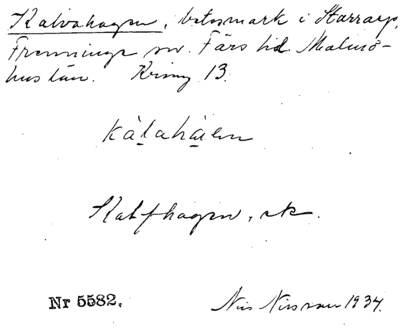 Kalvahagen, betesmark i Starrarp,
Fränninge sn. Färs hd. Malmö-
hus län. Kring 13.
kàlahàen
Kalfhagen, ek.
Nr 5582.
Nils Nilsson 1934.